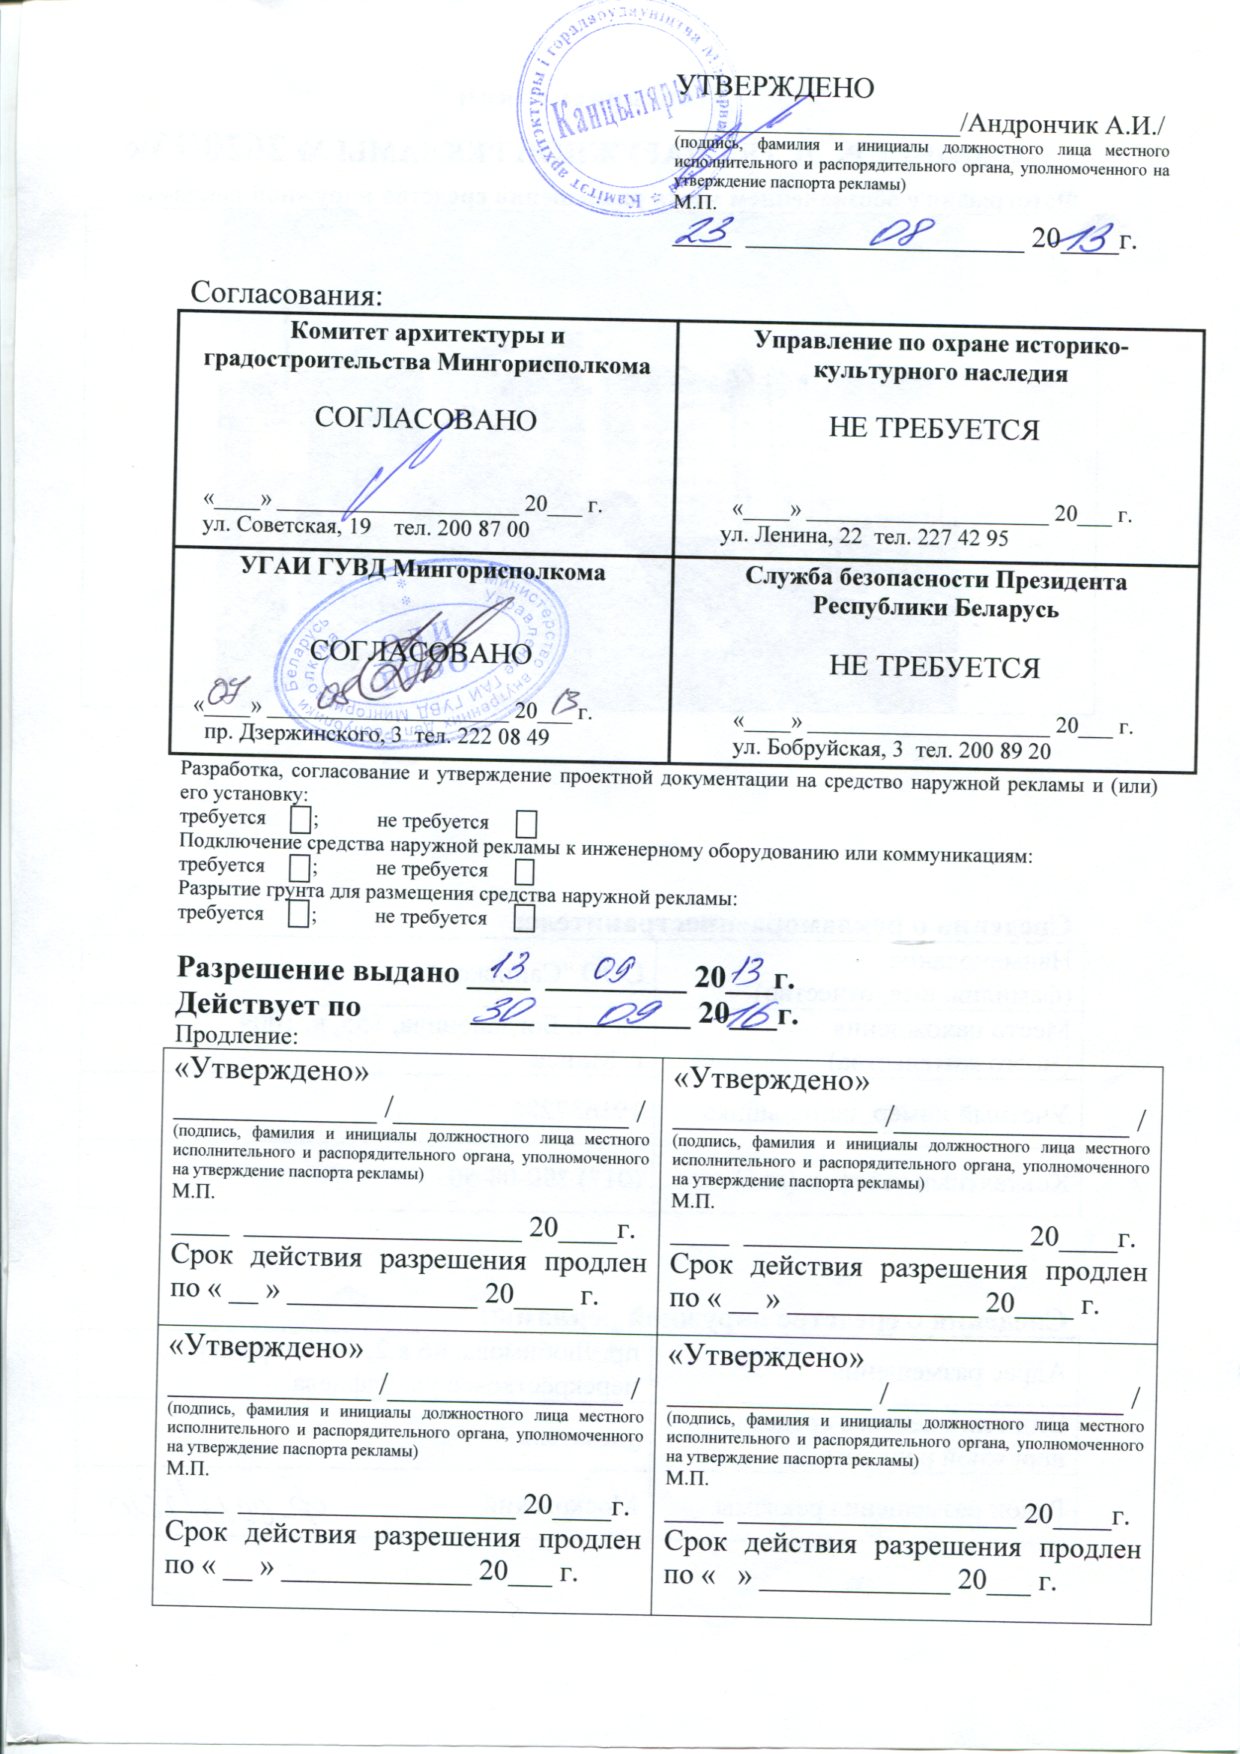 Камітэт архітэктуры і горадабудаўніцтва
Канцылярыя
УТВЕРЖДЕНО
____________________/Андрончик А.И./
(подпись, фамилия и инициалы должностного лица местного
исполнительного и распорядительного органа, уполномоченного на
утверждение паспорта рекламы)
М.П.
23 08 2013 г.
Согласования:
Комитет архитектуры и
градостроительства Мингорисполкома
СОГЛАСОВАНО
«____» ____________________ 20___ г.
ул. Советская, 19 тел. 200 87 00
Управление по охране историко-
культурного наследия
НЕ ТРЕБУЕТСЯ
«____» ____________________ 20___ г.
ул. Ленина, 22 тел. 227 42 95
УГАИ ГУВД Мингорисполкома
СОГЛАСОВАНО
«07» 08 2013 г.
пр. Дзержинского, 3 тел. 222 08 49
Служба безопасности Президента
Республики Беларусь
НЕ ТРЕБУЕТСЯ
«____» ____________________ 20___ г.
ул. Бобруйская, 3 тел. 200 89 20
Разработка, согласование и утверждение проектной документации на средство наружной рекламы и (или)
его установку:
требуется ; не требуется
Подключение средства наружной рекламы к инженерному оборудованию или коммуникациям:
требуется ; не требуется
Разрытие грунта для размещения средства наружной рекламы:
требуется ; не требуется
Разрешение выдано 13 09 2013 г.
Действует по 30 09 2016 г.
Продление:
«Утверждено»
_______________ /_________________ /
(подпись, фамилия и инициалы должностного лица местного
исполнительного и распорядительного органа, уполномоченного
на утверждение паспорта рекламы)
М.П.
____ ____________________ 20____г.
Срок действия разрешения продлен
по « __ » _____________ 20____ г.
«Утверждено»
_______________ /_________________ /
(подпись, фамилия и инициалы должностного лица местного
исполнительного и распорядительного органа, уполномоченного
на утверждение паспорта рекламы)
М.П.
____ ____________________ 20____г.
Срок действия разрешения продлен
по « __ » _____________ 20____ г.
«Утверждено»
_______________ /_________________ /
(подпись, фамилия и инициалы должностного лица местного
исполнительного и распорядительного органа, уполномоченного
на утверждение паспорта рекламы)
М.П.
____ ____________________ 20____г.
Срок действия разрешения продлен
по « __ » _____________ 20___ г.
«Утверждено»
_______________ /_________________ /
(подпись, фамилия и инициалы должностного лица местного
исполнительного и распорядительного органа, уполномоченного
на утверждение паспорта рекламы)
М.П.
____ ____________________ 20____г.
Срок действия разрешения продлен
по « » ______________ 20___ г.